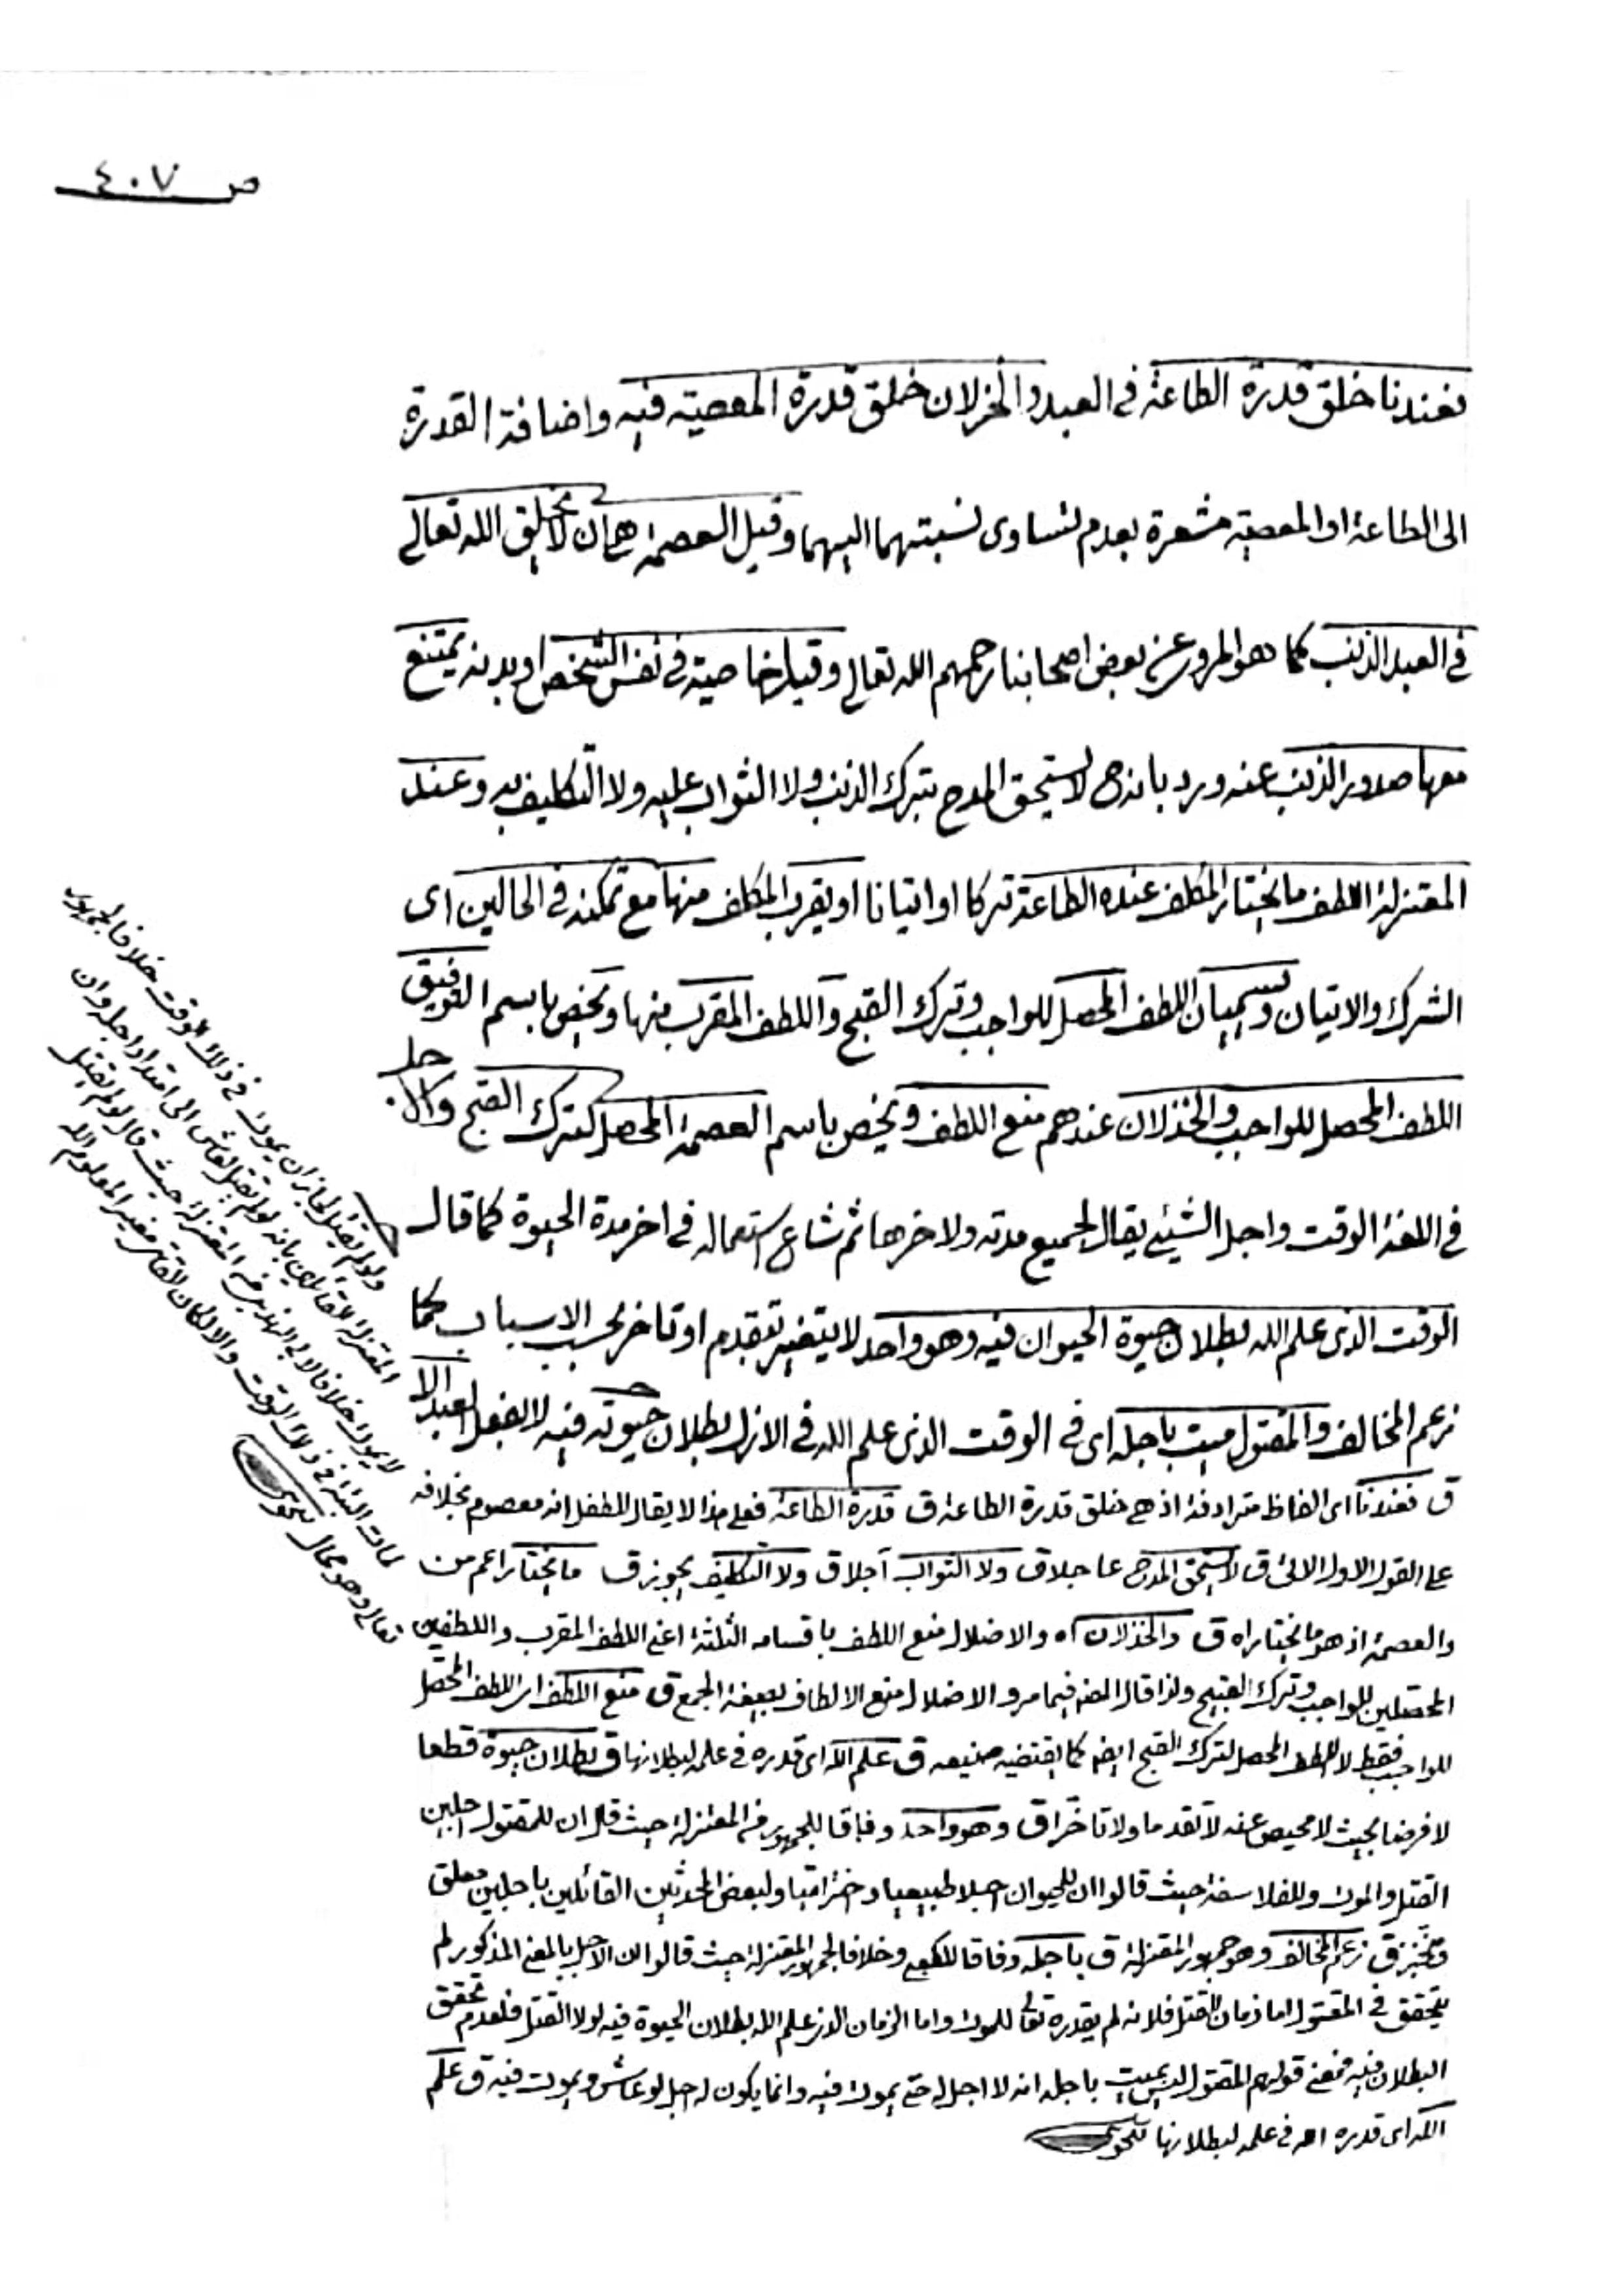 ص ٤٠٧
فعندنا خلق قدرة الطاعة فى العبد والخزلان خلق قدرة المعصية فيه واضافة القدرة
الى الطاعة او المعصية مشعرة بعدم تساوى نسبتهما اليهما وقيل العصمة هى ان لا يخلق الله تعالى
فى العبد الذنب كما هو المروى عن بعض اصحابنا رحمهم الله تعالى وقيل خاصية فى نفس الشخص او بدنه يمتنع
معها صدور الذنب عنه ورد بانه ح لا يستحق المدح بترك الذنب ولا الثواب عليه ولا التكليف به وعند
المعتزلة اللطف ما يختار المكلف عنده الطاعة تركا او اتيانا او يقرب المكلف منها مع تمكنه فى الحالين اى
الشرك والاتيان ويسميان اللطف المحصل للواجب وترك القبح واللطف المقرب منها ويخص باسم التوفيق
اللطف المحصل للواجب والخذلان عندهم منع اللطف ويخص باسم العصمة المحصل كترك القبح والاجل
فى اللغة الوقت واجل الشيئ يقال لجميع مدته ولاخرها ثم شاع استعماله فى اخر مدة الحيوة كما قال
الوقت الذى علم الله بطلان حيوة الحيوان فيه وهو واحد لا يتغير بتقدم او تاخر بحسب الاسباب كما
زعم المخالف والمقتول ميت باجله اى فى الوقت الذى علم الله فى الازل بطلان حيوته فيه لا بفعل العبد الا
ق فعندنا اى الفاظ مترادفة اذ هى خلق قدرة الطاعة ق قدرة الطاعة فعلى هذا لا يقال للطفل انه معصوم بخلافه
على القول الاول الاتى ق لا يستحق المدح عاجلا ق ولا الثواب آجلا ق ولا التكليف يجوز ق ما يختار اعم من
والعصمة اذ هو ما يختاراه ق والخذلان اه والاضلال منع اللطف باقسامه الثلثة اعنى اللطف المقرب واللطفين
المحصلين للواجب وترك القبيح ولذا قال المصـ فيما مر والاضلال منع الالطاف بصيغة الجمع ق منع اللطف اى اللطف المحصل
للواجب فقط لا اللطف المحصل لترك القبح ايضـ كما يقتضيه صنيعه ق علم الله اى قدره فى علمه لبطلانها ق بطلان حيوة قطعا
لا فرضا بحيث لا محيص عنه لا تقدما ولا تاخرا ق وهو واحد وفاقا للجمهور من المعتزلة حيث قال ان للمقتول اجلين
القتل والموت وللفلاسفة حيث قالوا ان للحيوان اجلا طبيعيا واختراميا ولبعض المحدثين القائلين باجلين معلق
ق زعم المخالف وهو جمهور المعتزلة ق باجله وفاقا للكعبى وخلافا لجمهور المعتزلة حيث قالوا ان الاجل بالمعنى المذكور لم
يتحقق فى المقتول اما زمان القتل فلانه لم يقدره تعالى للموت واما الزمان الذى علم الله بطلان الحيوة فيه لولا القتل فلعدم تحقق
البطلان فيه فمعنى قولهم المقتول ليس بميت باجله انه لا اجل له حتى يموت فيه وانما يكون له اجل لو عاش ويموت فيه ق علم
الله اى قدره اه فى علمه لبطلانها
ولو لم يقتل لجاز ان يموت فى ذلك الوقت خلافا لجمهور
المعتزلة القائلين بانه لو لم يقتل لعاش الى امتداد اجله وان
لا يموت خلافا لابى الهذيل من المعتزلة حيث قال لو لم يقتل
لمات البتة فى ذلك الوقت والا لكان القاتل مغير المعلوم الله
تعالى وهو محال